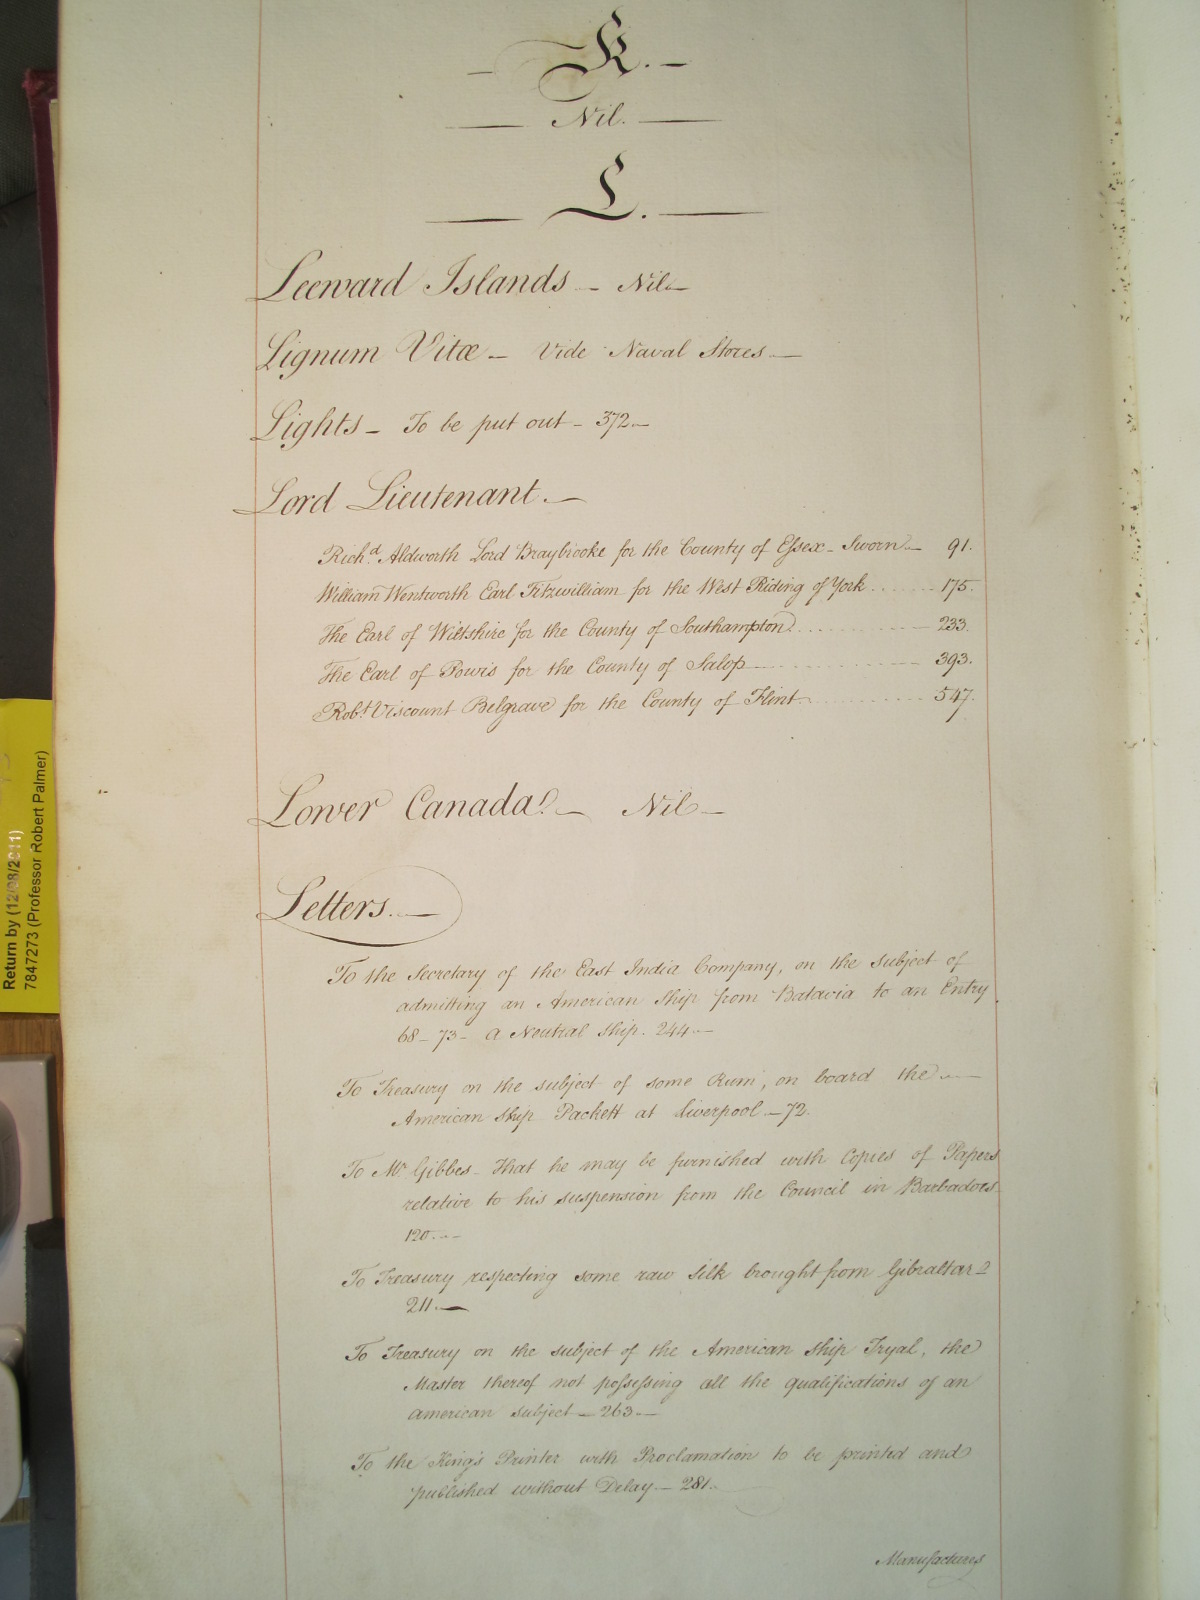 K.
Nil.
L.
Leeward Islands — Nil —
Lignum Vitæ — Vide Naval Stores —
Lights — To be put out — 372 —
Lord Lieutenant. —
Rich.d Aldworth Lord Braybrooke for the County of Essex — Sworn — 91.
William Wentworth Earl Fitzwilliam for the West Riding of York ........ 175.
The Earl of Wiltshire for the County of Southampton ........ 233.
The Earl of Powis for the County of Salop ........ 393.
Rob.t Viscount Belgrave for the County of Flint ........ 547.
Lower Canada. — Nil —
Letters. —
To the Secretary of the East India Company, on the subject of
admitting an American Ship from Batavia to an Entry
68 — 73 — a Neutral Ship. 244 —
To Treasury on the subject of some Rum, on board the —
American Ship Packett at Liverpool. — 72.
To Mr. Gibbes — That he may be furnished with Copies of Papers
relative to his suspension from the Council in Barbadoes.
120. —
To Treasury respecting some raw Silk brought from Gibraltar —
211. —
To Treasury on the subject of the American Ship Tryal, the
Master thereof not possessing all the qualifications of an
american subject — 263 —
To the King's Printer with Proclamation to be printed and
published without Delay. — 281.
Manufactures
Return by (12/08/2011)
7847273 (Professor Robert Palmer)